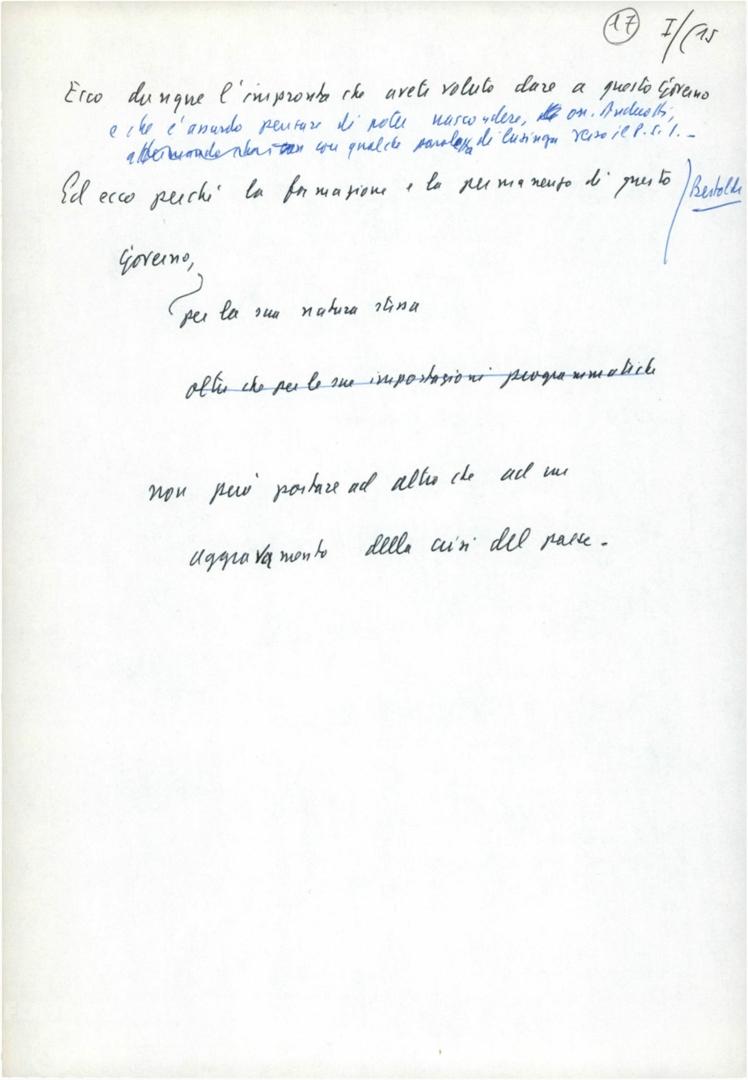 17 I/15
Ecco dunque l'impronta che avete voluto dare a questo Governo
e che è assurdo pensare di poter nascondere, on. Andreotti,
con qualche paroletta di lusinga verso il P.S.I.-
Ed ecco perché la formazione e la permanenza di questo
Bertoldi
Governo,
per la sua natura stessa
oltre che per le sue impostazioni programmatiche
non può portare ad altro che ad un
aggravamento della crisi del paese.